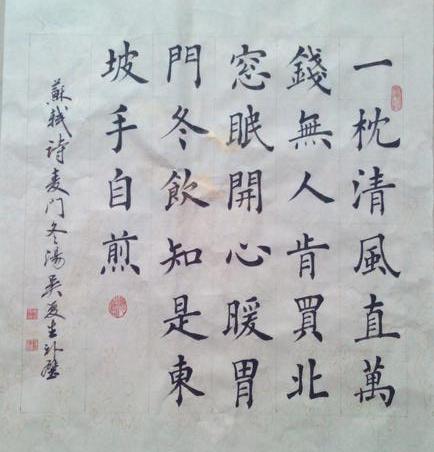 一枕清風直萬
錢無人肯買北
窓眠開心暖胃
門冬飲知是東
坡手自煎
蘇軾詩麦门冬湯吴夏生孙壁